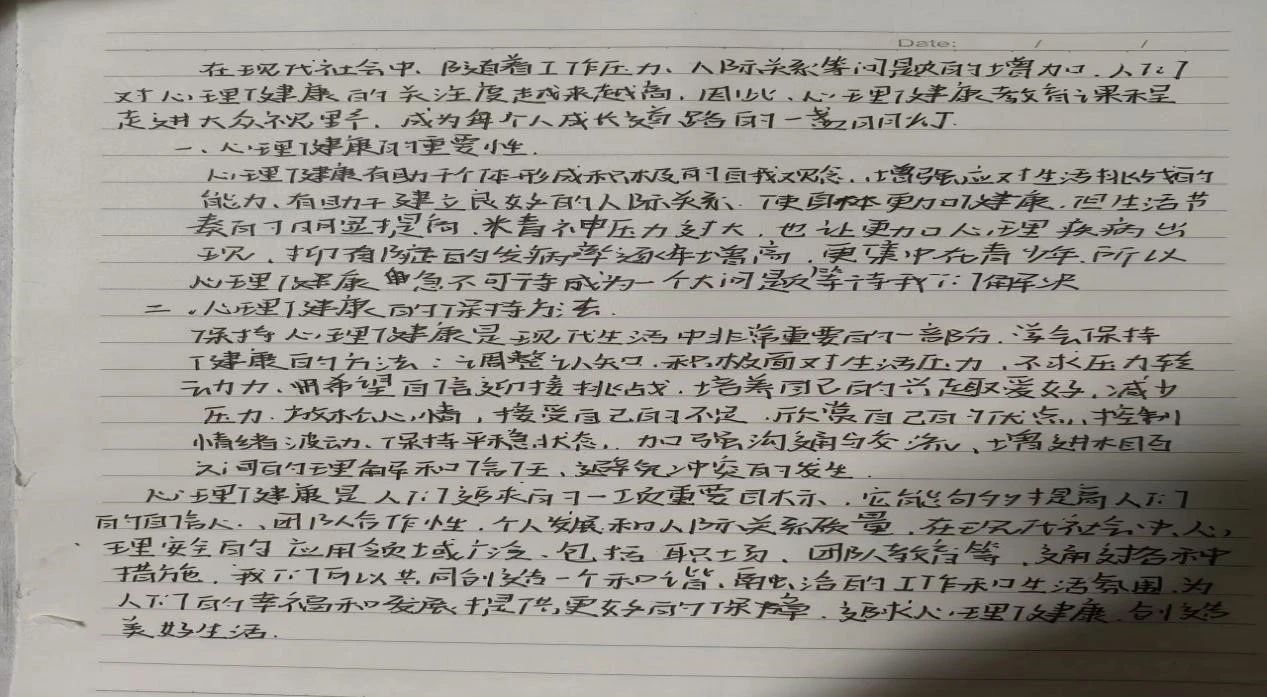 Date: / /
在现代社会中、随着工作压力、人际关系等问题的增加，人们
对心理健康的关注度越来越高，因此、心理健康教育课程
走进大众视野、成为每个人成长道路的一盏明灯.
一、心理健康的重要性.
心理健康有助于个体形成积极的自我观念、增强应对生活挑战的
能力、有助于建立良好的人际关系、使身体更加健康，但生活节
奏的明显提高、精神压力过大，也让更加心理疾病出
现，抑郁症的发病率逐年增高，更集中在青少年，所以
心理健康急不可待成为一个大问题等待我们解决
二、心理健康的保持方法.
保持心理健康是现代生活中非常重要的一部分，学会保持
健康的方法：调整认知、积极面对生活压力、不求压力转
动力、用希望自信迎接挑战，培养自己的兴趣爱好，减少
压力、放松心情，接受自己的不足、欣赏自己的优点，控制
情绪波动、保持平稳状态，加强沟通与交流、增进相互
之间的理解和信任、避免冲突的发生.
心理健康是人们追求的一项重要目标，它能够提高人们
的自信心、团队合作性，个人发展和人际关系质量，在现代社会中，心
理安全的应用领域广泛、包括职场、团队教育等，通过各种
措施，我们可以共同创造一个和谐、融洽的工作和生活氛围，为
人们的幸福和发展提供更好的保障，追求心理健康，创造
美好生活.